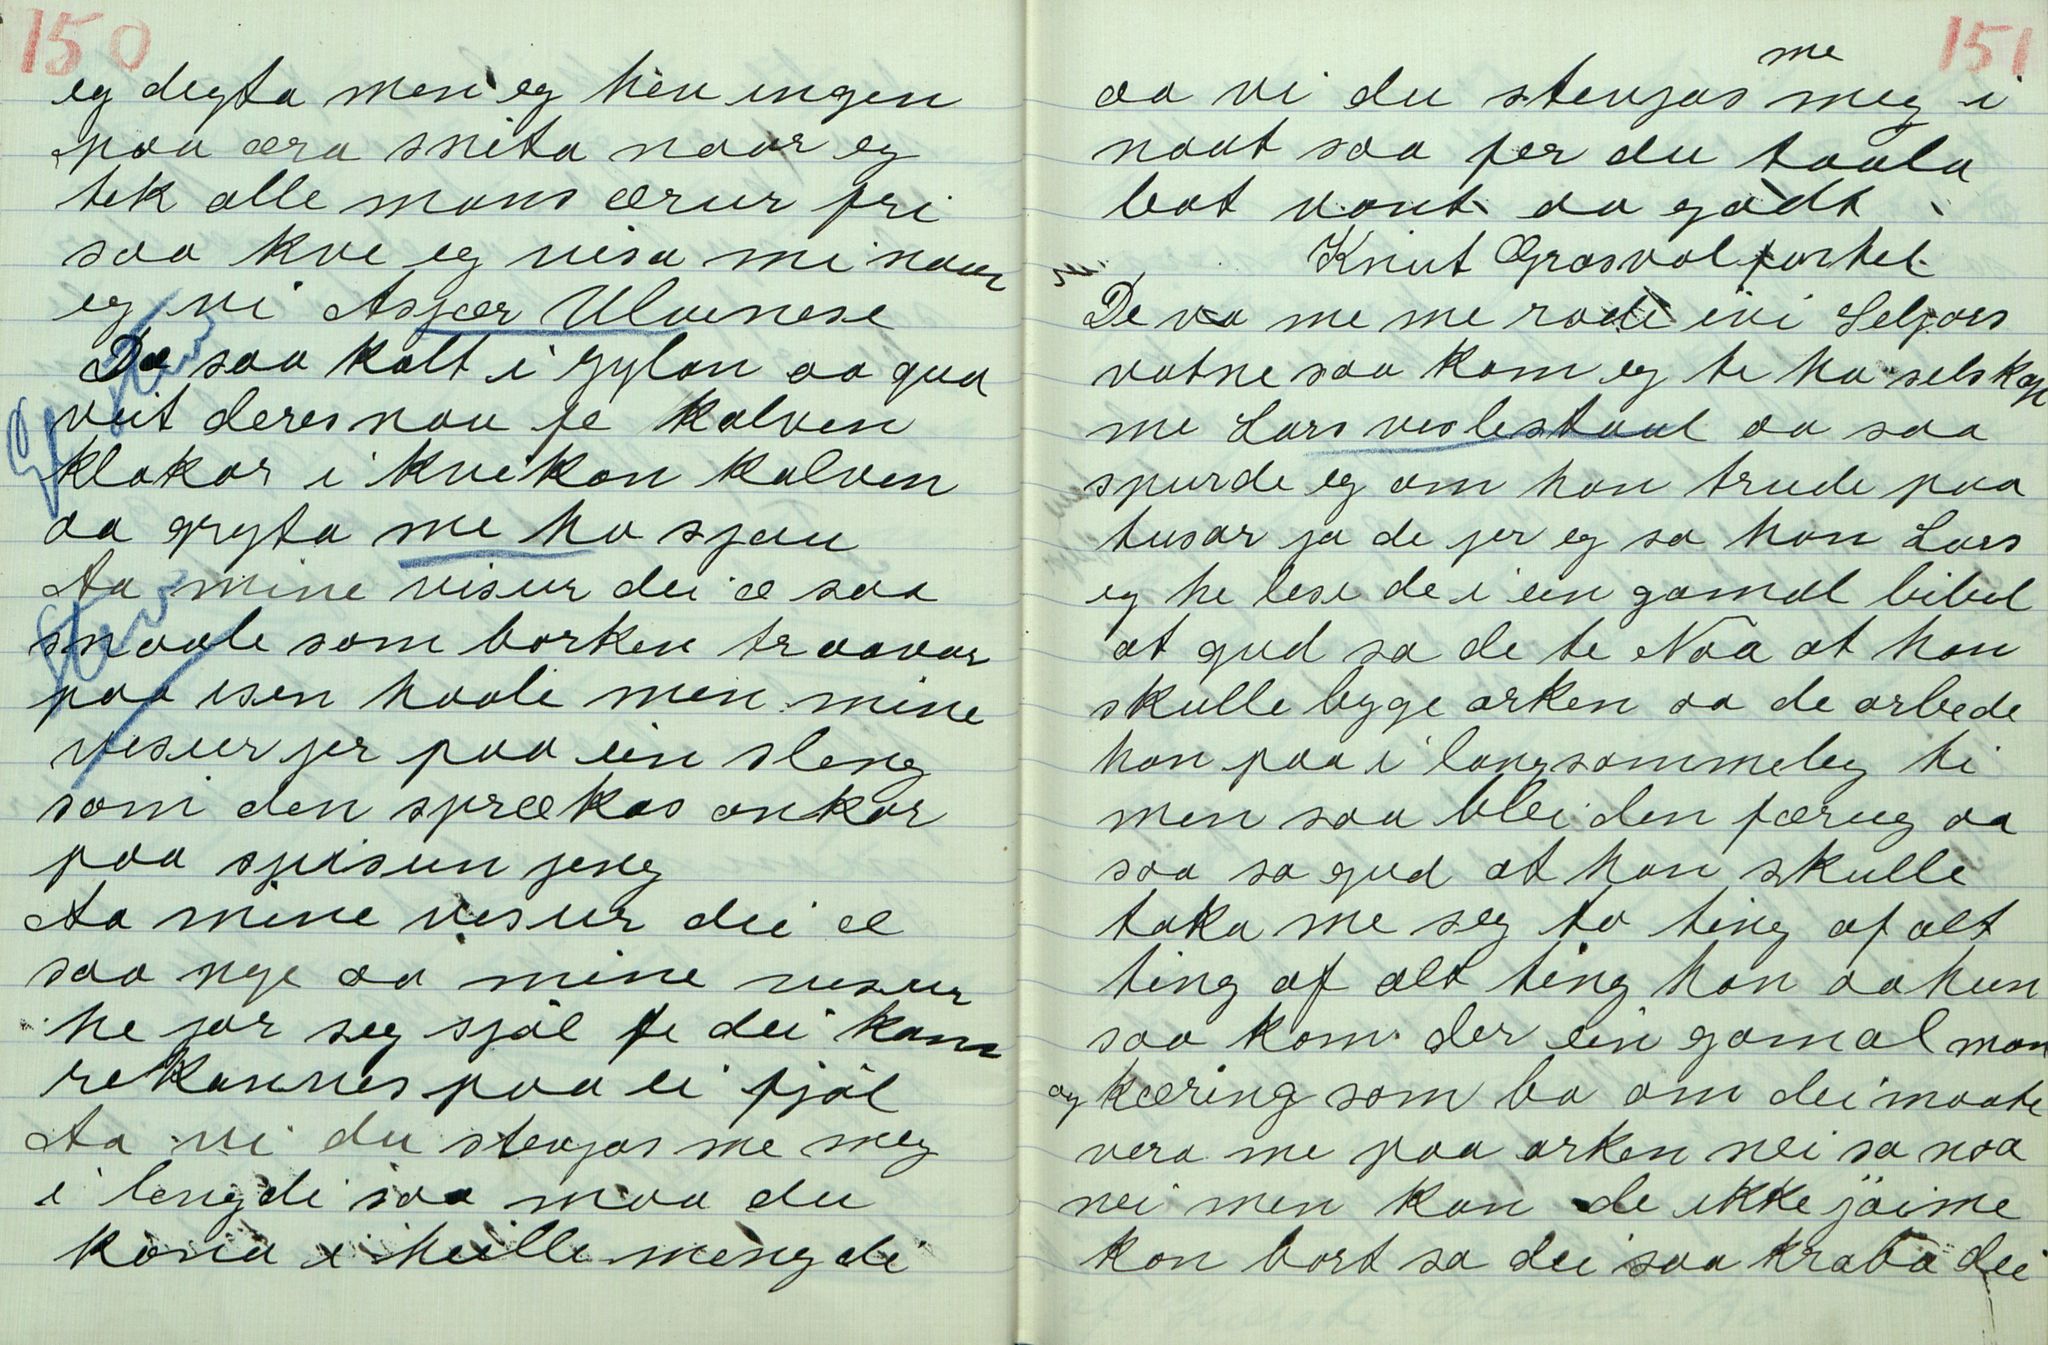 150
eg degta men eg hev ingen
paa æra snita naar eg
tek alle mans ærur fri
saa kve eg visa mi naar
eg vi Asjær Ulvenese
Dæ saa kalt i gylon aa gua
veit deres nau fe kalven
klakar i kvikon kalven
aa gryta me ha sjau
Aa mine visur dei æ saa
snaale som borken traavar
paa isen haale men mine
visur jer paa ein sleng
som den sprækas ankar
paa spisun jeng
Aa mine visur dei æ
saa nye aa mine visur
he jor seg sjøl fe dei kann
rekannes paa ei fjøl
Aa vi du stevjas me meg
i lengdi saa maa du
koma i heille mengdi
151
aa vi du stevjas me meg i
naat saa fer du taala
bat vont aa godt
Knut Græsvol fortel
De va me me rode ivi Seljors
vatne saa kom eg te ha selskap
me Lars veslestaul aa saa
spurde eg om han trude paa
tusar ja de jer eg sa han Lars
eg he lese de i ein gamal bibel
at gud sa de te Noa at han
skulle byge arken aa de arbede
han paa i langsommeleg ti
men saa blei den færug aa
saa sa gud at han skulle
taka me seg to ting af alt
ting af alt ting han aa hun
saa kom der ein gamal man
og kæring som ba om dei maate
vera me paa arken nei sa noa
nei men kan de ikke jøime
kon bort sa dei saa kraba dei